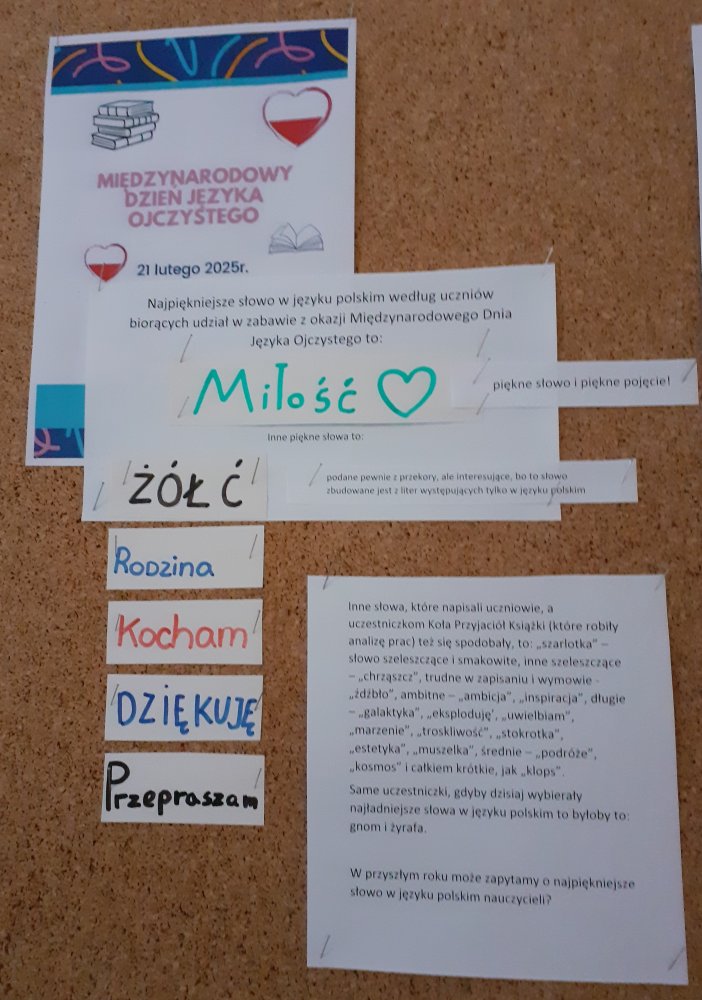 MIĘDZYNARODOWY
DZIEŃ JĘZYKA
OJCZYSTEGO
21 lutego 2025r.
Najpiękniejsze słowo w języku polskim według uczniów
biorących udział w zabawie z okazji Międzynarodowego Dnia
Języka Ojczystego to:
Miłość
piękne słowo i piękne pojęcie!
Inne piękne słowa to:
ŻÓŁĆ
podane pewnie z przekory, ale interesujące, bo to słowo
zbudowane jest z liter występujących tylko w języku polskim
Rodzina
Kocham
DZIĘKUJĘ
Przepraszam
Inne słowa, które napisali uczniowie, a
uczestniczkom Koła Przyjaciół Książki (które robiły
analizę prac) też się spodobały, to: „szarlotka” –
słowo szeleszczące i smakowite, inne szeleszczące
– „chrząszcz”, trudne w zapisaniu i wymowie -
„źdźbło”, ambitne – „ambicja”, „inspiracja”, długie
– „galaktyka”, „eksploduję’, „uwielbiam”,
„marzenie”, „troskliwość”, „stokrotka”,
„estetyka”, „muszelka”, średnie – „podróże”,
„kosmos” i całkiem krótkie, jak „klops”.
Same uczestniczki, gdyby dzisiaj wybierały
najładniejsze słowa w języku polskim to byłoby to:
gnom i żyrafa.
W przyszłym roku może zapytamy o najpiękniejsze
słowo w języku polskim nauczycieli?